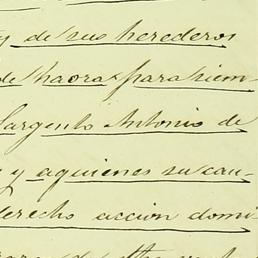 y de sus herederos
de haora para siem
Sargento Antonio de
y aquienes su cau-
derecho accion domi